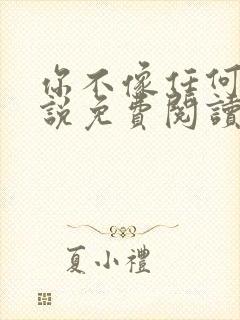 你不像任何
說免費閱讀
夏小禮